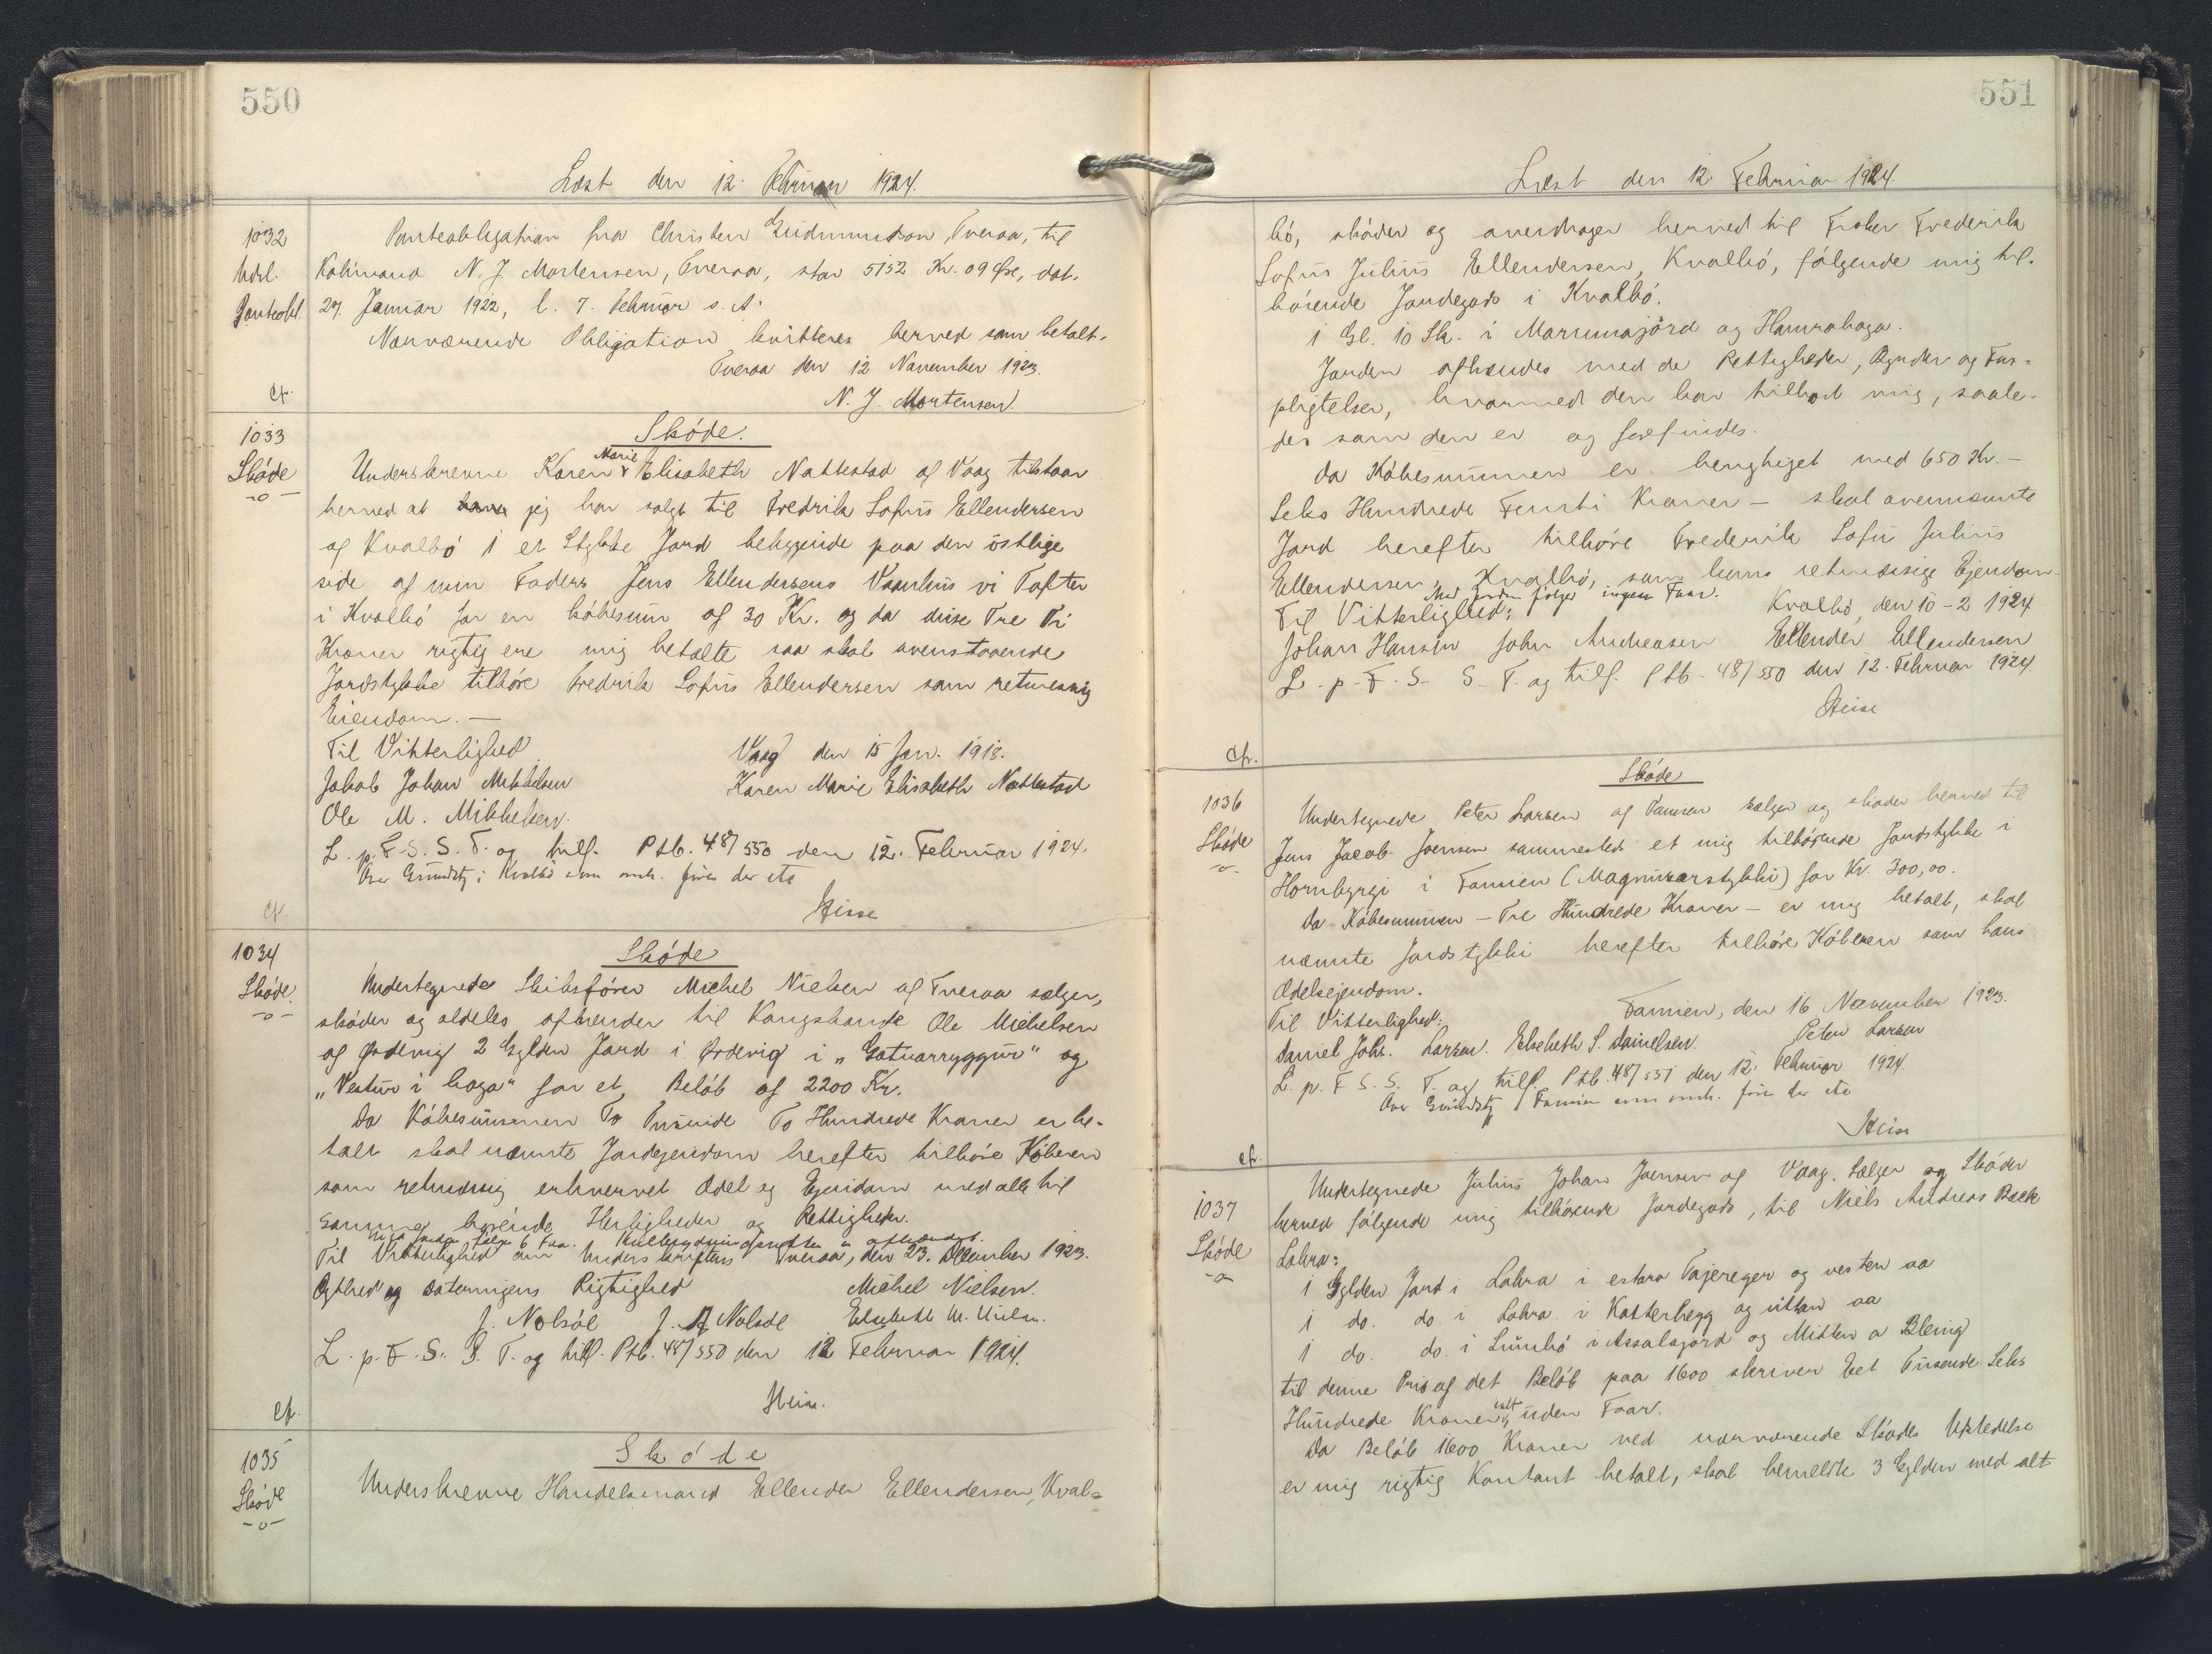 550
Læst den 12. Februar 1924.
1032
Udsl.
Panteobl.
Panteobligation fra Christen Gudmundson, Tveraa, til
Købmand N. J. Mortensen, Tveraa, stor 5152 Kr. 09 Øre, dat.
27. Januar 1922, l. 7. Februar s. A.
Nærværende Obligation kvitteres herved som betalt.
Tveraa den 12 November 1923.
N. J. Mortensen.
cfr.
1033
Skøde
-o-
Skøde.
Underskrevne Karen Marie Elisabeth Nattestad af Vaag tilstaar
herved at jeg har solgt til Fredrik Lofus Ellendersen
af Kvalbø 1 et Stykke Jord beliggende paa den østlige
side af min Faders Jens Ellendersens Vaanhus vi Tofter
i Kvalbø for en købesum af 30 Kr. og da disse Tre Ti
Kroner rigtig ere mig betalte saa skal ovenstaaende
Jordstykke tilhøre Fredrik Lofus Ellendersen som retmessig
Eiendom. —
Til Vitterlighed
Vaag den 15 Jan. 1918.
Jakob Johan Mikkelsen
Karen Marie Elisabeth Nattestad
Ole M. Mikkelsen.
L. p. F. S. S. T. og tilf. Ptb. 48/550 den 12. Februar 1924.
Ovr Grundstk i Kvalbø som omh. føres der ete
Heise
cfr.
1034
Skøde.
-o-
Skøde
Undertegnede Skibsfører Michel Nielsen af Tveraa sælger,
skøder og aldeles afhender til Kongsbonde Ole Michelsen
af Ørdevig 2 Gylden Jord i Ørdevig i "Gotuarryggur" og
"Vestur i haga" for et Beløb af 2200 Kr.
Da Købesummen To Tusinde To Hundrede Kroner er be-
talt skal nævnte Jordejendom herefter tilhøre Køberen
som retmæssig erhvervet Odel og Ejendom med alle til
samme hørende Herligheder og Rettigheder.
Med Jorden følger 6 Faar. Kulbrydningsretten er afhændet.
Til Vitterlighed om Underskriftens Tveraa, den 23. December 1923.
Ægthed og Dateringens Rigtighed
Michel Nielsen.
J. Nolsøe J. A Nolsøe Elsebeth M. Nielsen.
L. p. F. S. S. T. og tilf. Ptb. 48/550 den 12 Februar 1924.
Heise.
cfr.
1035
Skøde
-o-
Skøde
Underskrevne Handelsmand Ellender Ellendersen, Kval-
551
Læst den 12. Februar 1924.
bø, skøder og overdrager herved til Fisker Frederik
Lofus Julius Ellendersen, Kvalbø, følgende mig til-
hørende Jordegods i Kvalbø.
1 Gl. 10 Sk. i Marumajørd og Hamrahaga.
Jorden afhændes med de Rettigheder, Byrder og For-
pligtelser, hvormed den har tilhørt mig, saale-
des som den er og forefindes.
Da Købesummen er berigtiget med 650 Kr. —
Seks Hundrede Femti Kroner — skal ovennævnte
Jord herefter tilhøre Frederik Lofus Julius
Ellendersen, Kvalbø, som hans retmæssige Ejendom.
Med Jorden følger ingen Faar.
Til Vitterlighed:
Kvalbø, den 10-2 1924
Johan Hansen John Andreasen Ellender Ellendersen
L. p. F. S. S. T. og tilf. Ptb. 48/550 den 12. Februar 1924.
Heise
cfr.
1036
Skøde
-o-
Skøde
Undertegnede Peter Larsen af Famien sælger og skøder herved til
Jens Jacob Joensen sammesteds et mig tilhørende Jordstykke i
Hornbyrgi i Famien (Magnusarstykki) for Kr. 300,00.
Da Købesummen — Tre Hundrede Kroner — er mig betalt, skal
nævnte Jordstykki herefter tilhøre Køberen som hans
Odelsejendom.
Famien, den 16 November 1923.
Til Vitterlighed:
Peter Larsen
Daniel Johs. Larsen. Elsebeth S. Danielsen.
L. p. F. S. S. T. og tilf. Ptb. 48/551 den 12. Februar 1924.
Ovr Grundstk i Famien som omh. føres der ete
Heise
cfr.
1037
Skøde
-o-
Undertegnede Julius Johan Joensen af Vaag. Sælger og Skøder
herved følgende mig tilhørende Jordegods, til Niels Andreas Bæck
Lobra:
1 Gylden Jord i Lobra i estara Tajereger og vesten aa
1 do. do. i Lobra i Katterhegg og uttan aa
1 do. do. i Sumbø i Assalsjørd og Mitten a Bleing
til denne Pris af det Beløb paa 1600 skriver Eet Tusende Seks
Hundrede Kroner alt uden Faar.
Da Beløb 1600 Kroner ved nærværende Skødes Udstedelse
er mig rigtig Kontant betalt, skal bemeldte 3 Gylden med alt